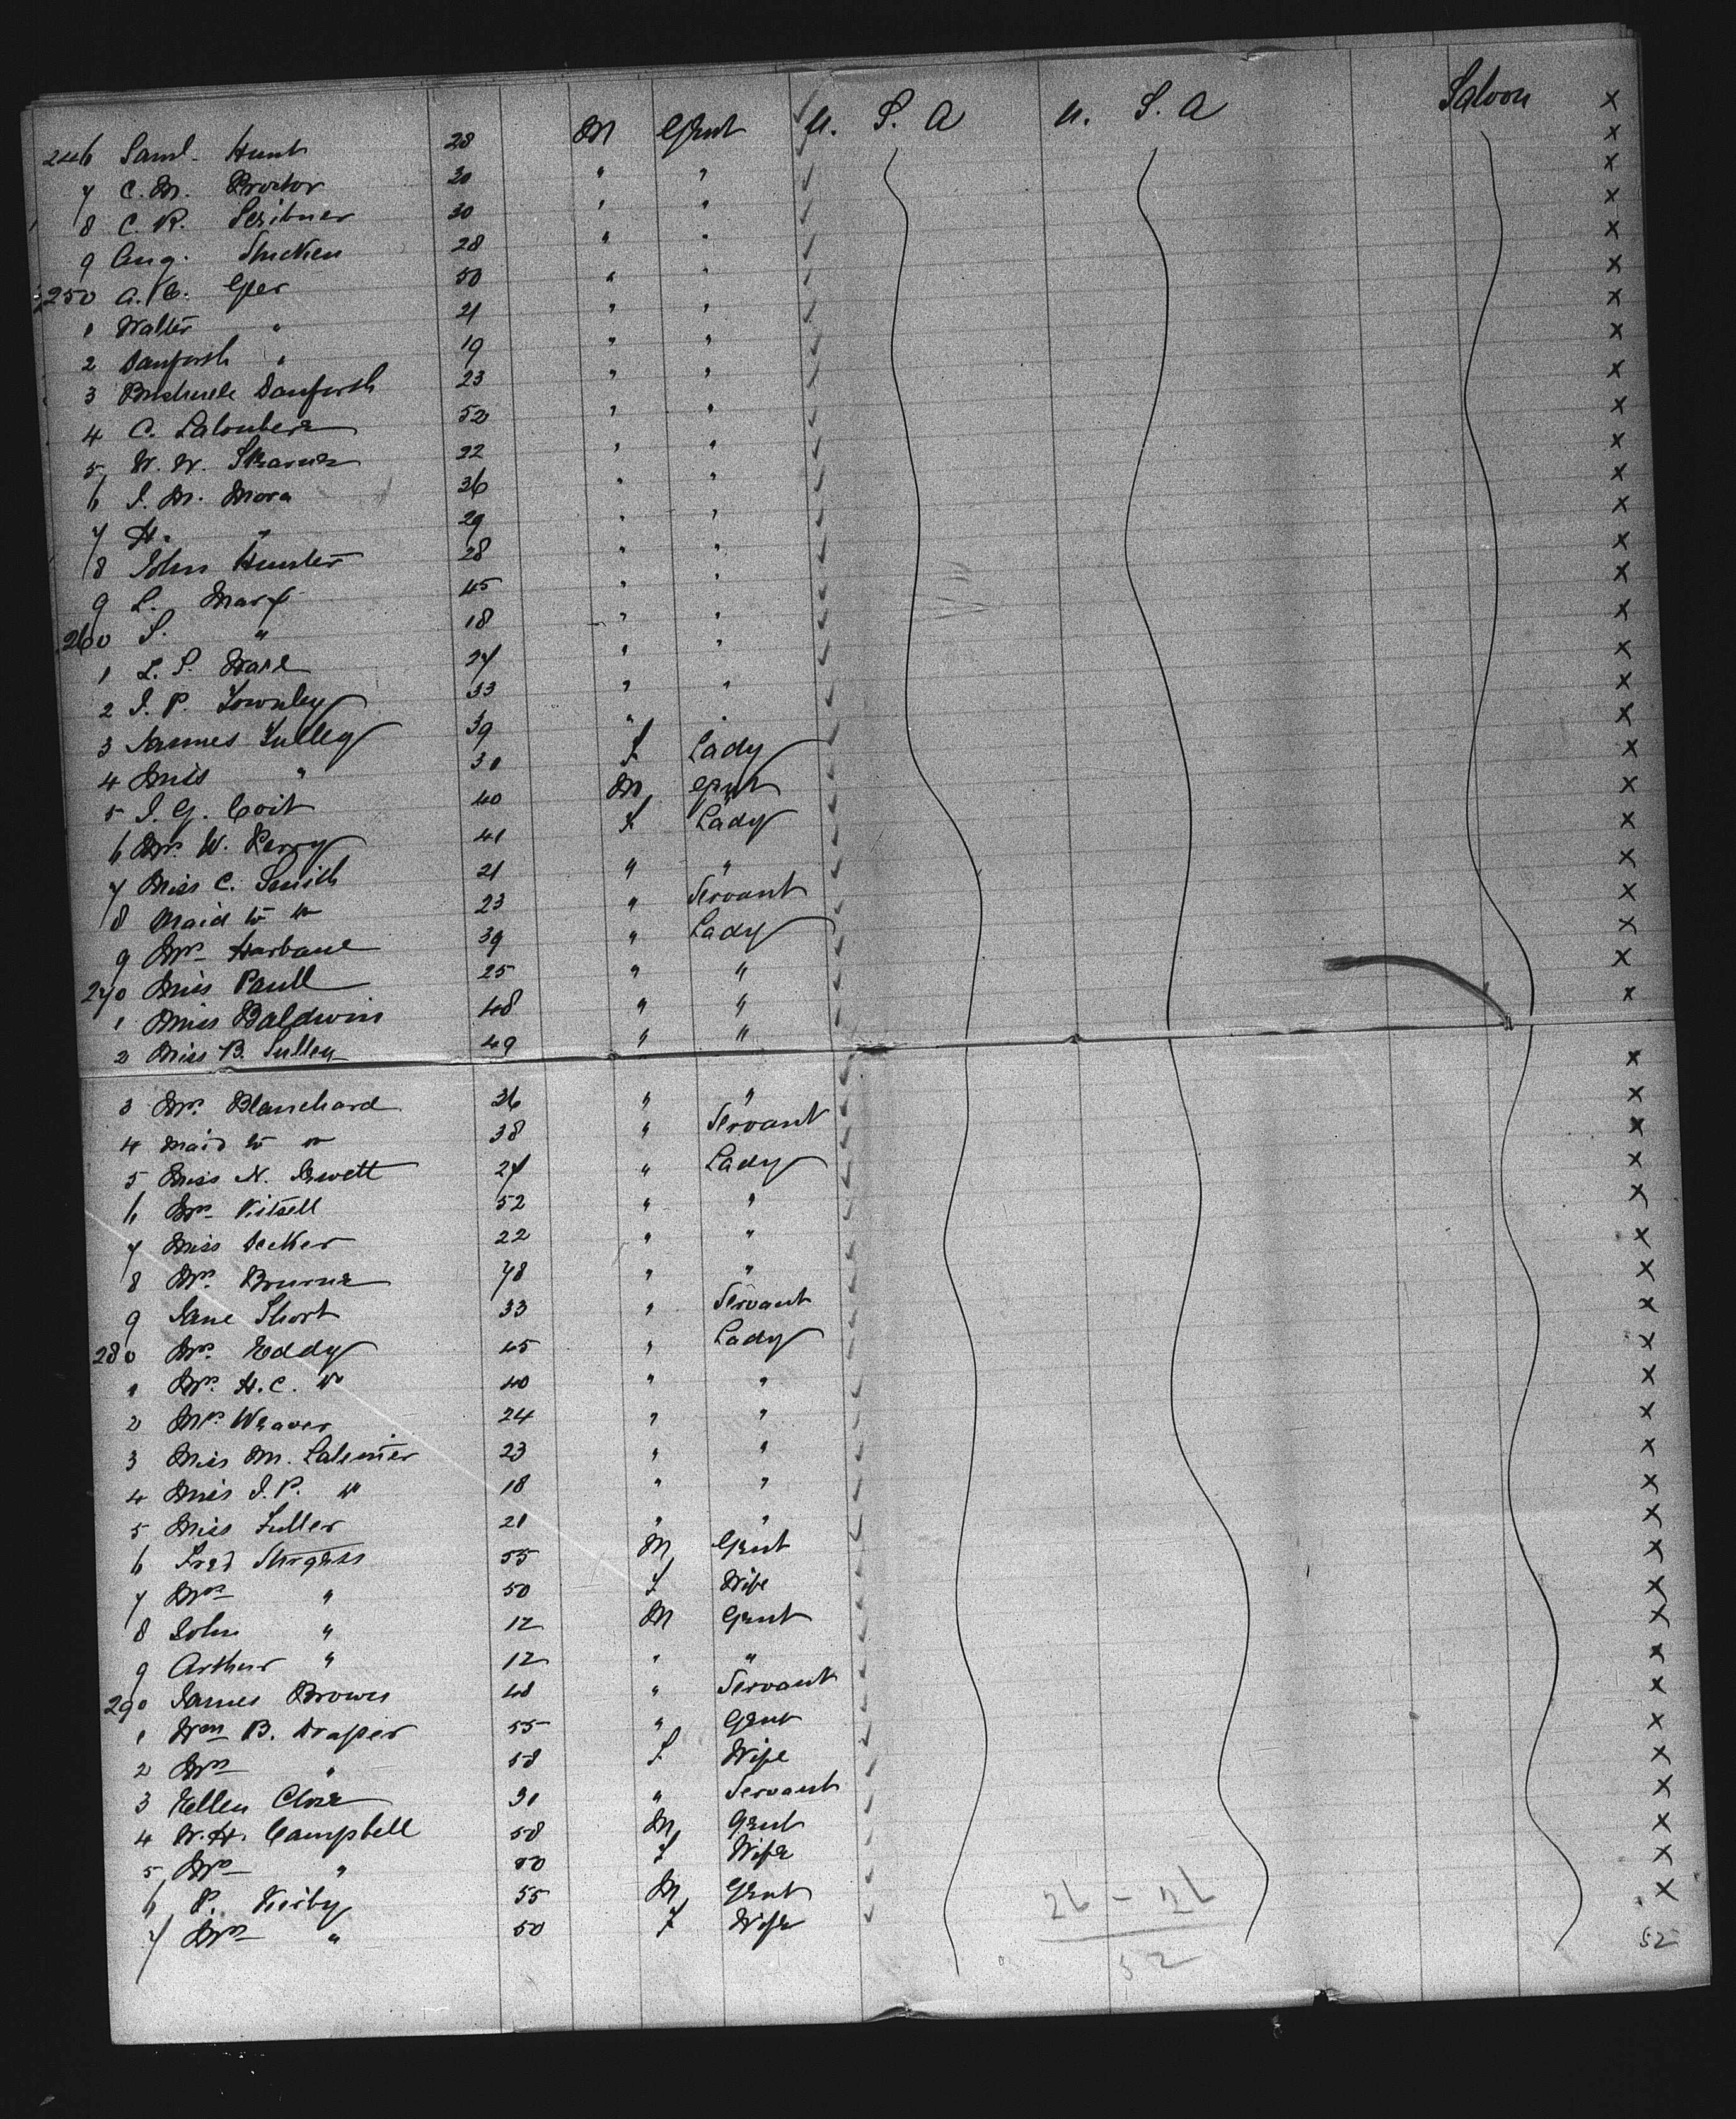 246 Saml. Hunt 28 M Gent U. S. A U. S. A Saloon x
7 C. M. Proctor 30 " " x
8 C. R. Scribner 30 " " x
9 Aug. 28 " " x
250 A. C. Geer 50 " " x
1 Walter " 21 " " x
2 Danforth " 19 " " x
3 Danforth 23 " " x
4 C. 52 " " x
5 W. W. 22 " " x
6 J. M. Mora 36 " " x
7 H. " 29 " " x
8 John Hunter 28 " " x
9 L. Marx 45 " " x
260 S. " 18 " " x
1 L. S. 27 " " x
2 J. P. Townley 33 " " x
3 James Tulley 39 " " x
4 Miss " 30 F Lady x
5 J. G. Coit 40 M Gent x
6 Mrs. W. Perry 41 F Lady x
7 Miss C. Smith 21 " " x
8 Maid to do 23 " Servant x
9 Mrs 39 " Lady x
270 Miss Paull 25 " " x
1 Miss Baldwin 48 " " x
2 Miss B. 49 " " x
3 Mrs. Blanchard 36 " " x
4 Maid to do 38 " Servant x
5 Miss N. Jewett 27 " Lady x
6 Mrs 52 " " x
7 Miss Decker 22 " " x
8 Mrs. 48 " " x
9 Jane Short 33 " Servant x
280 Mrs. Eddy 45 " Lady x
1 Mrs. H. C. do 40 " " x
2 Mrs. Weaver 24 " " x
3 Miss M. Latimer 23 " " x
4 Miss J. P. do 18 " " x
5 Miss Fuller 21 " " x
6 Fred Sturgess 55 M Gent x
7 Mrs " 50 F Wife x
8 John " 12 M Gent x
9 Arthur " 12 " " x
290 James Brown 48 " Servant x
1 Wm B. Draper 55 " Gent x
2 Mrs " 58 F Wife x
3 Ellen 30 " Servant x
4 W. H. Campbell 58 M Gent x
5 Mrs " 50 F Wife x
6 P. Kirby 55 M Gent x
7 Mrs " 50 F Wife
26 - 26
52
52